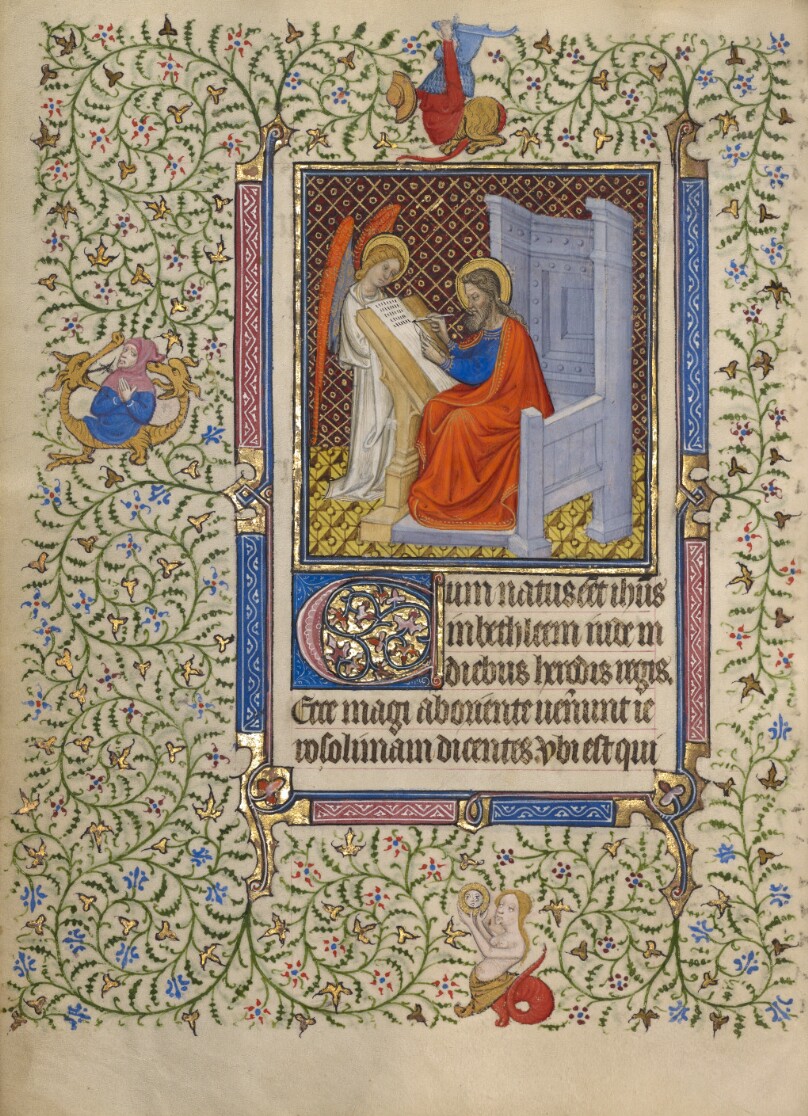 Cum natus eēt ihūs
in bethleem iude in
diebus herodis regis.
Ecce magi ab oriente uen̄unt ie
rosolimam dicentes. Vbi est qui